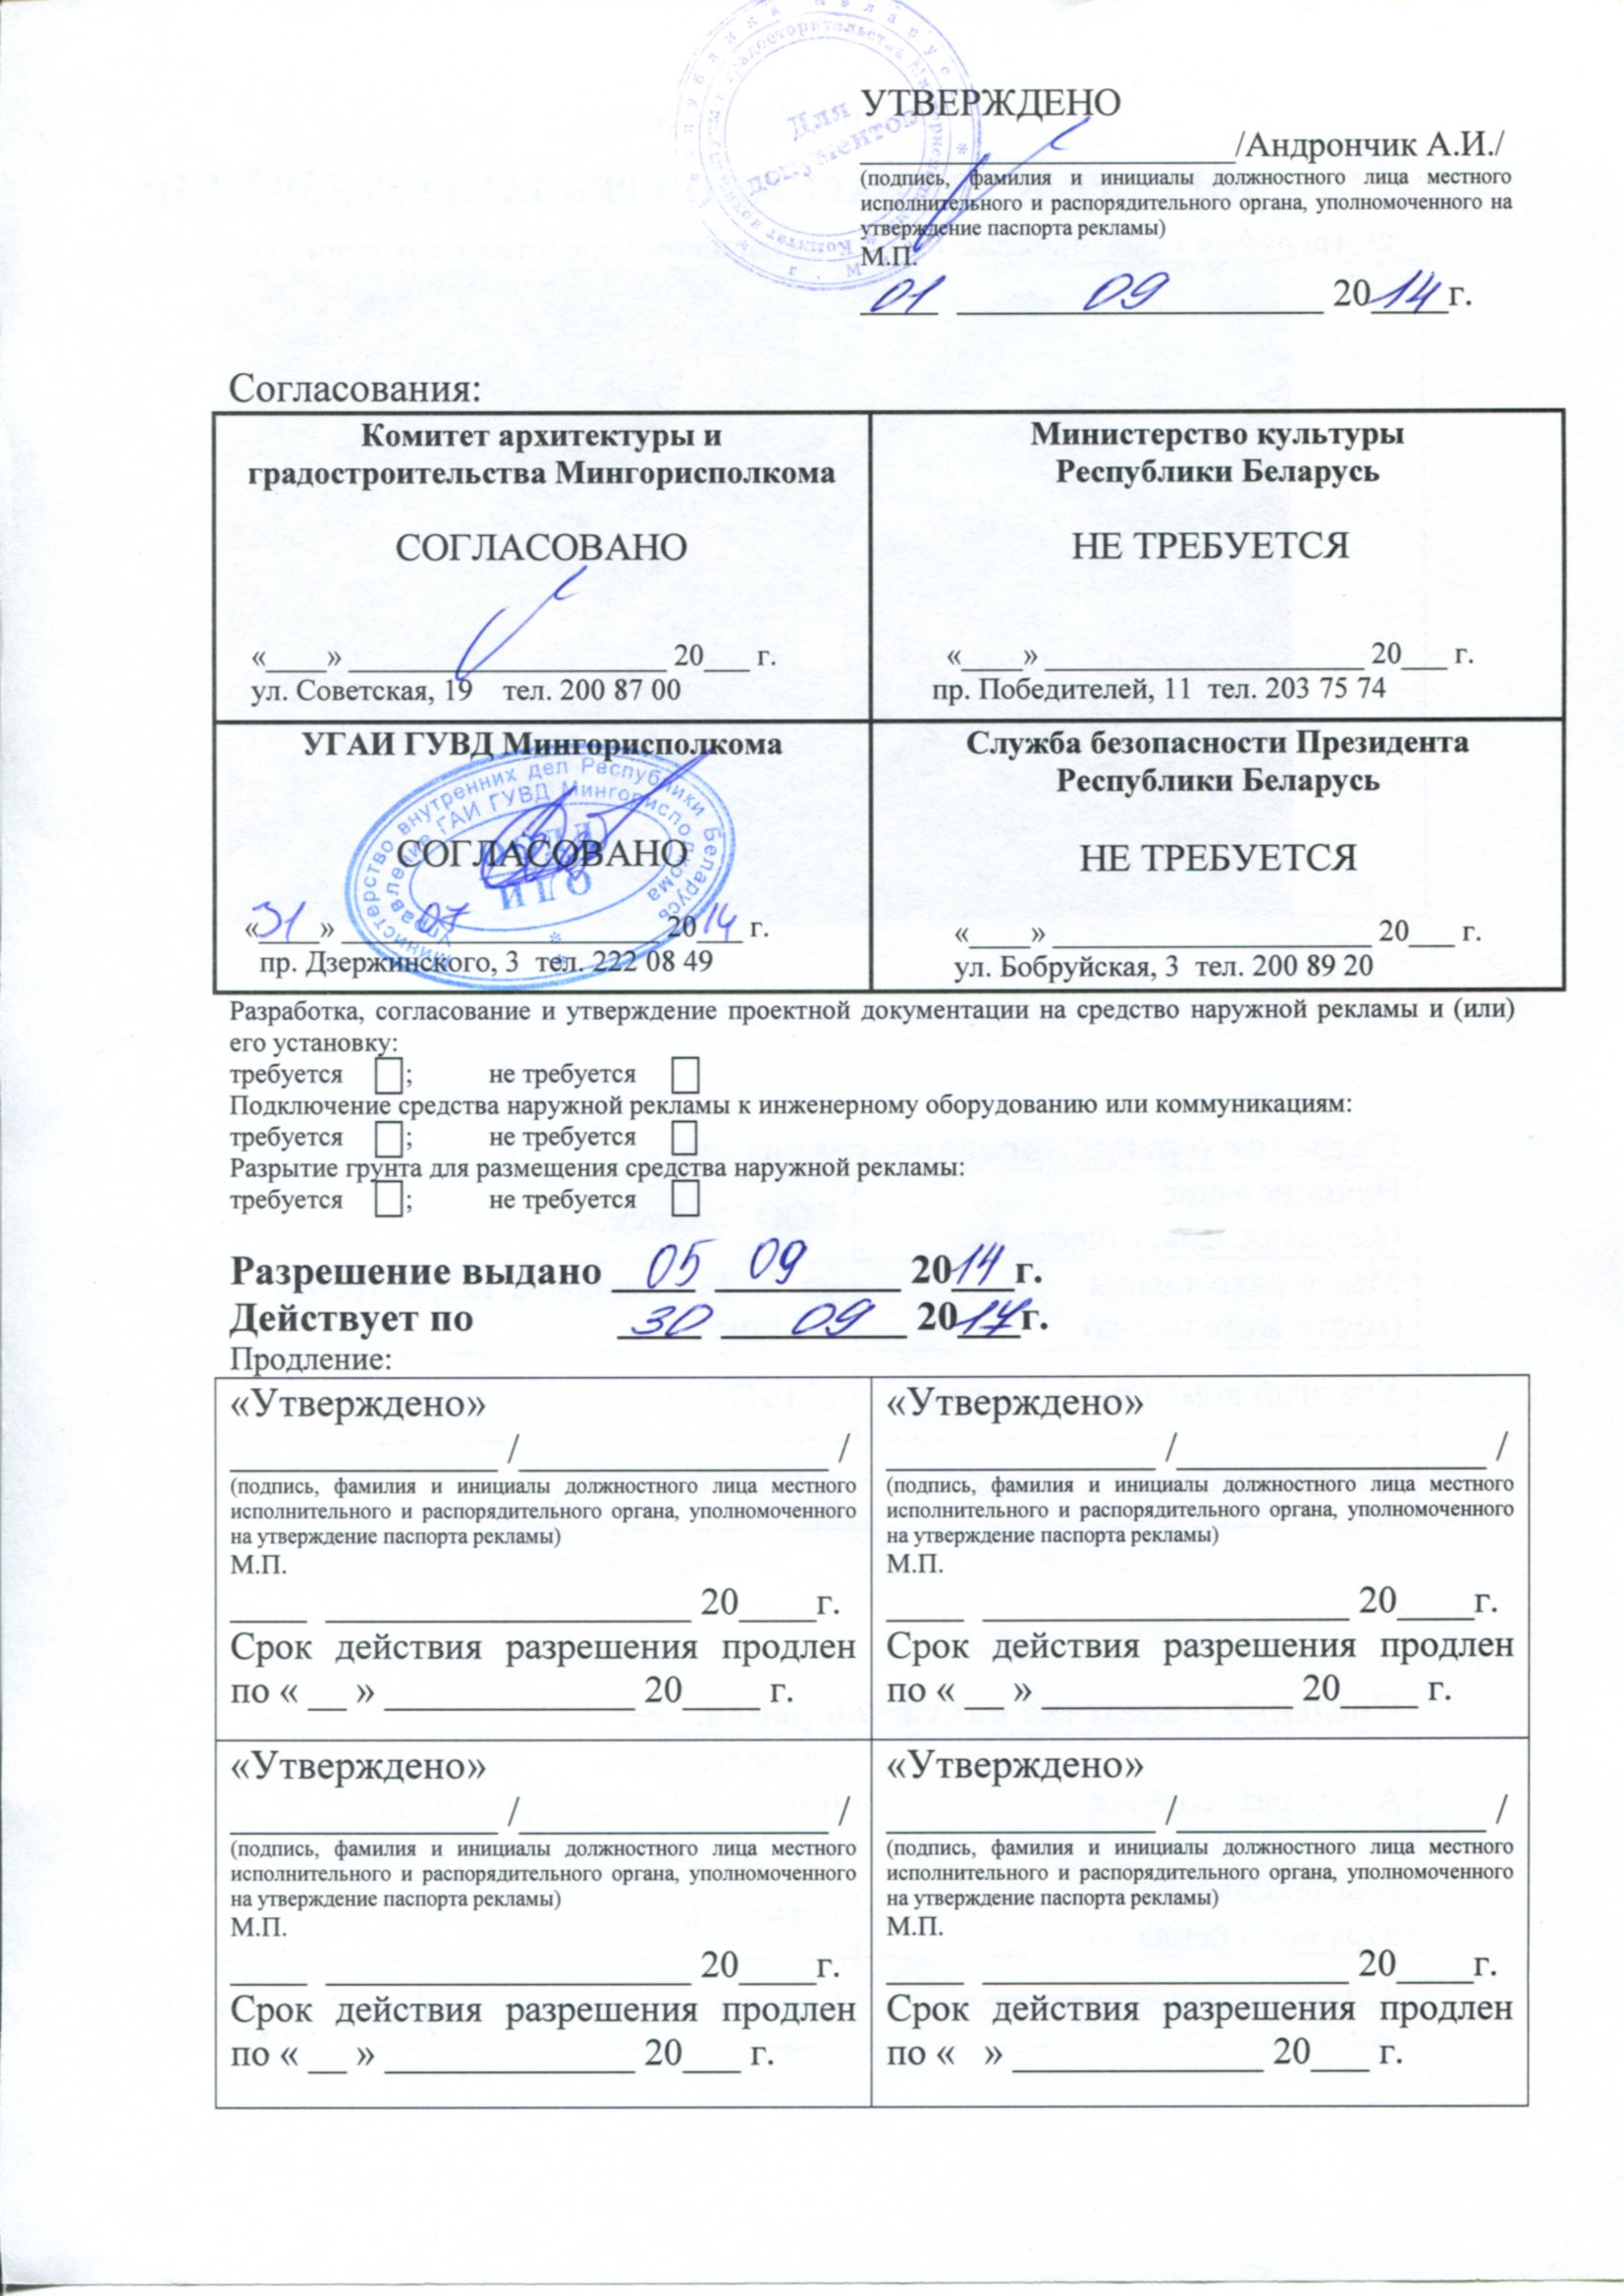 УТВЕРЖДЕНО
____________________/Андрончик А.И./
(подпись, фамилия и инициалы должностного лица местного
исполнительного и распорядительного органа, уполномоченного на
утверждение паспорта рекламы)
М.П.
01 09 2014г.
Для
документов
Согласования:
Комитет архитектуры и
градостроительства Мингорисполкома
СОГЛАСОВАНО
«____» ____________________ 20___ г.
ул. Советская, 19 тел. 200 87 00
Министерство культуры
Республики Беларусь
НЕ ТРЕБУЕТСЯ
«____» ____________________ 20___ г.
пр. Победителей, 11 тел. 203 75 74
УГАИ ГУВД Мингорисполкома
СОГЛАСОВАНО
«31» 07 2014 г.
пр. Дзержинского, 3 тел. 222 08 49
Министерство внутренних дел Республики Беларусь
Управление ГАИ ГУВД Мингорисполкома
Служба безопасности Президента
Республики Беларусь
НЕ ТРЕБУЕТСЯ
«____» ____________________ 20___ г.
ул. Бобруйская, 3 тел. 200 89 20
Разработка, согласование и утверждение проектной документации на средство наружной рекламы и (или)
его установку:
требуется ☐; не требуется ☐
Подключение средства наружной рекламы к инженерному оборудованию или коммуникациям:
требуется ☐; не требуется ☐
Разрытие грунта для размещения средства наружной рекламы:
требуется ☐; не требуется ☐
Разрешение выдано 05 09 2014г.
Действует по 30 09 2017г.
Продление:
«Утверждено»
______________ /________________ /
(подпись, фамилия и инициалы должностного лица местного
исполнительного и распорядительного органа, уполномоченного
на утверждение паспорта рекламы)
М.П.
____ ___________________ 20____г.
Срок действия разрешения продлен
по « __ » _____________ 20____ г.
«Утверждено»
______________ /________________ /
(подпись, фамилия и инициалы должностного лица местного
исполнительного и распорядительного органа, уполномоченного
на утверждение паспорта рекламы)
М.П.
____ ___________________ 20____г.
Срок действия разрешения продлен
по « __ » _____________ 20____ г.
«Утверждено»
______________ /________________ /
(подпись, фамилия и инициалы должностного лица местного
исполнительного и распорядительного органа, уполномоченного
на утверждение паспорта рекламы)
М.П.
____ ___________________ 20____г.
Срок действия разрешения продлен
по « __ » _____________ 20___ г.
«Утверждено»
______________ /________________ /
(подпись, фамилия и инициалы должностного лица местного
исполнительного и распорядительного органа, уполномоченного
на утверждение паспорта рекламы)
М.П.
____ ___________________ 20____г.
Срок действия разрешения продлен
по « » _____________ 20___ г.